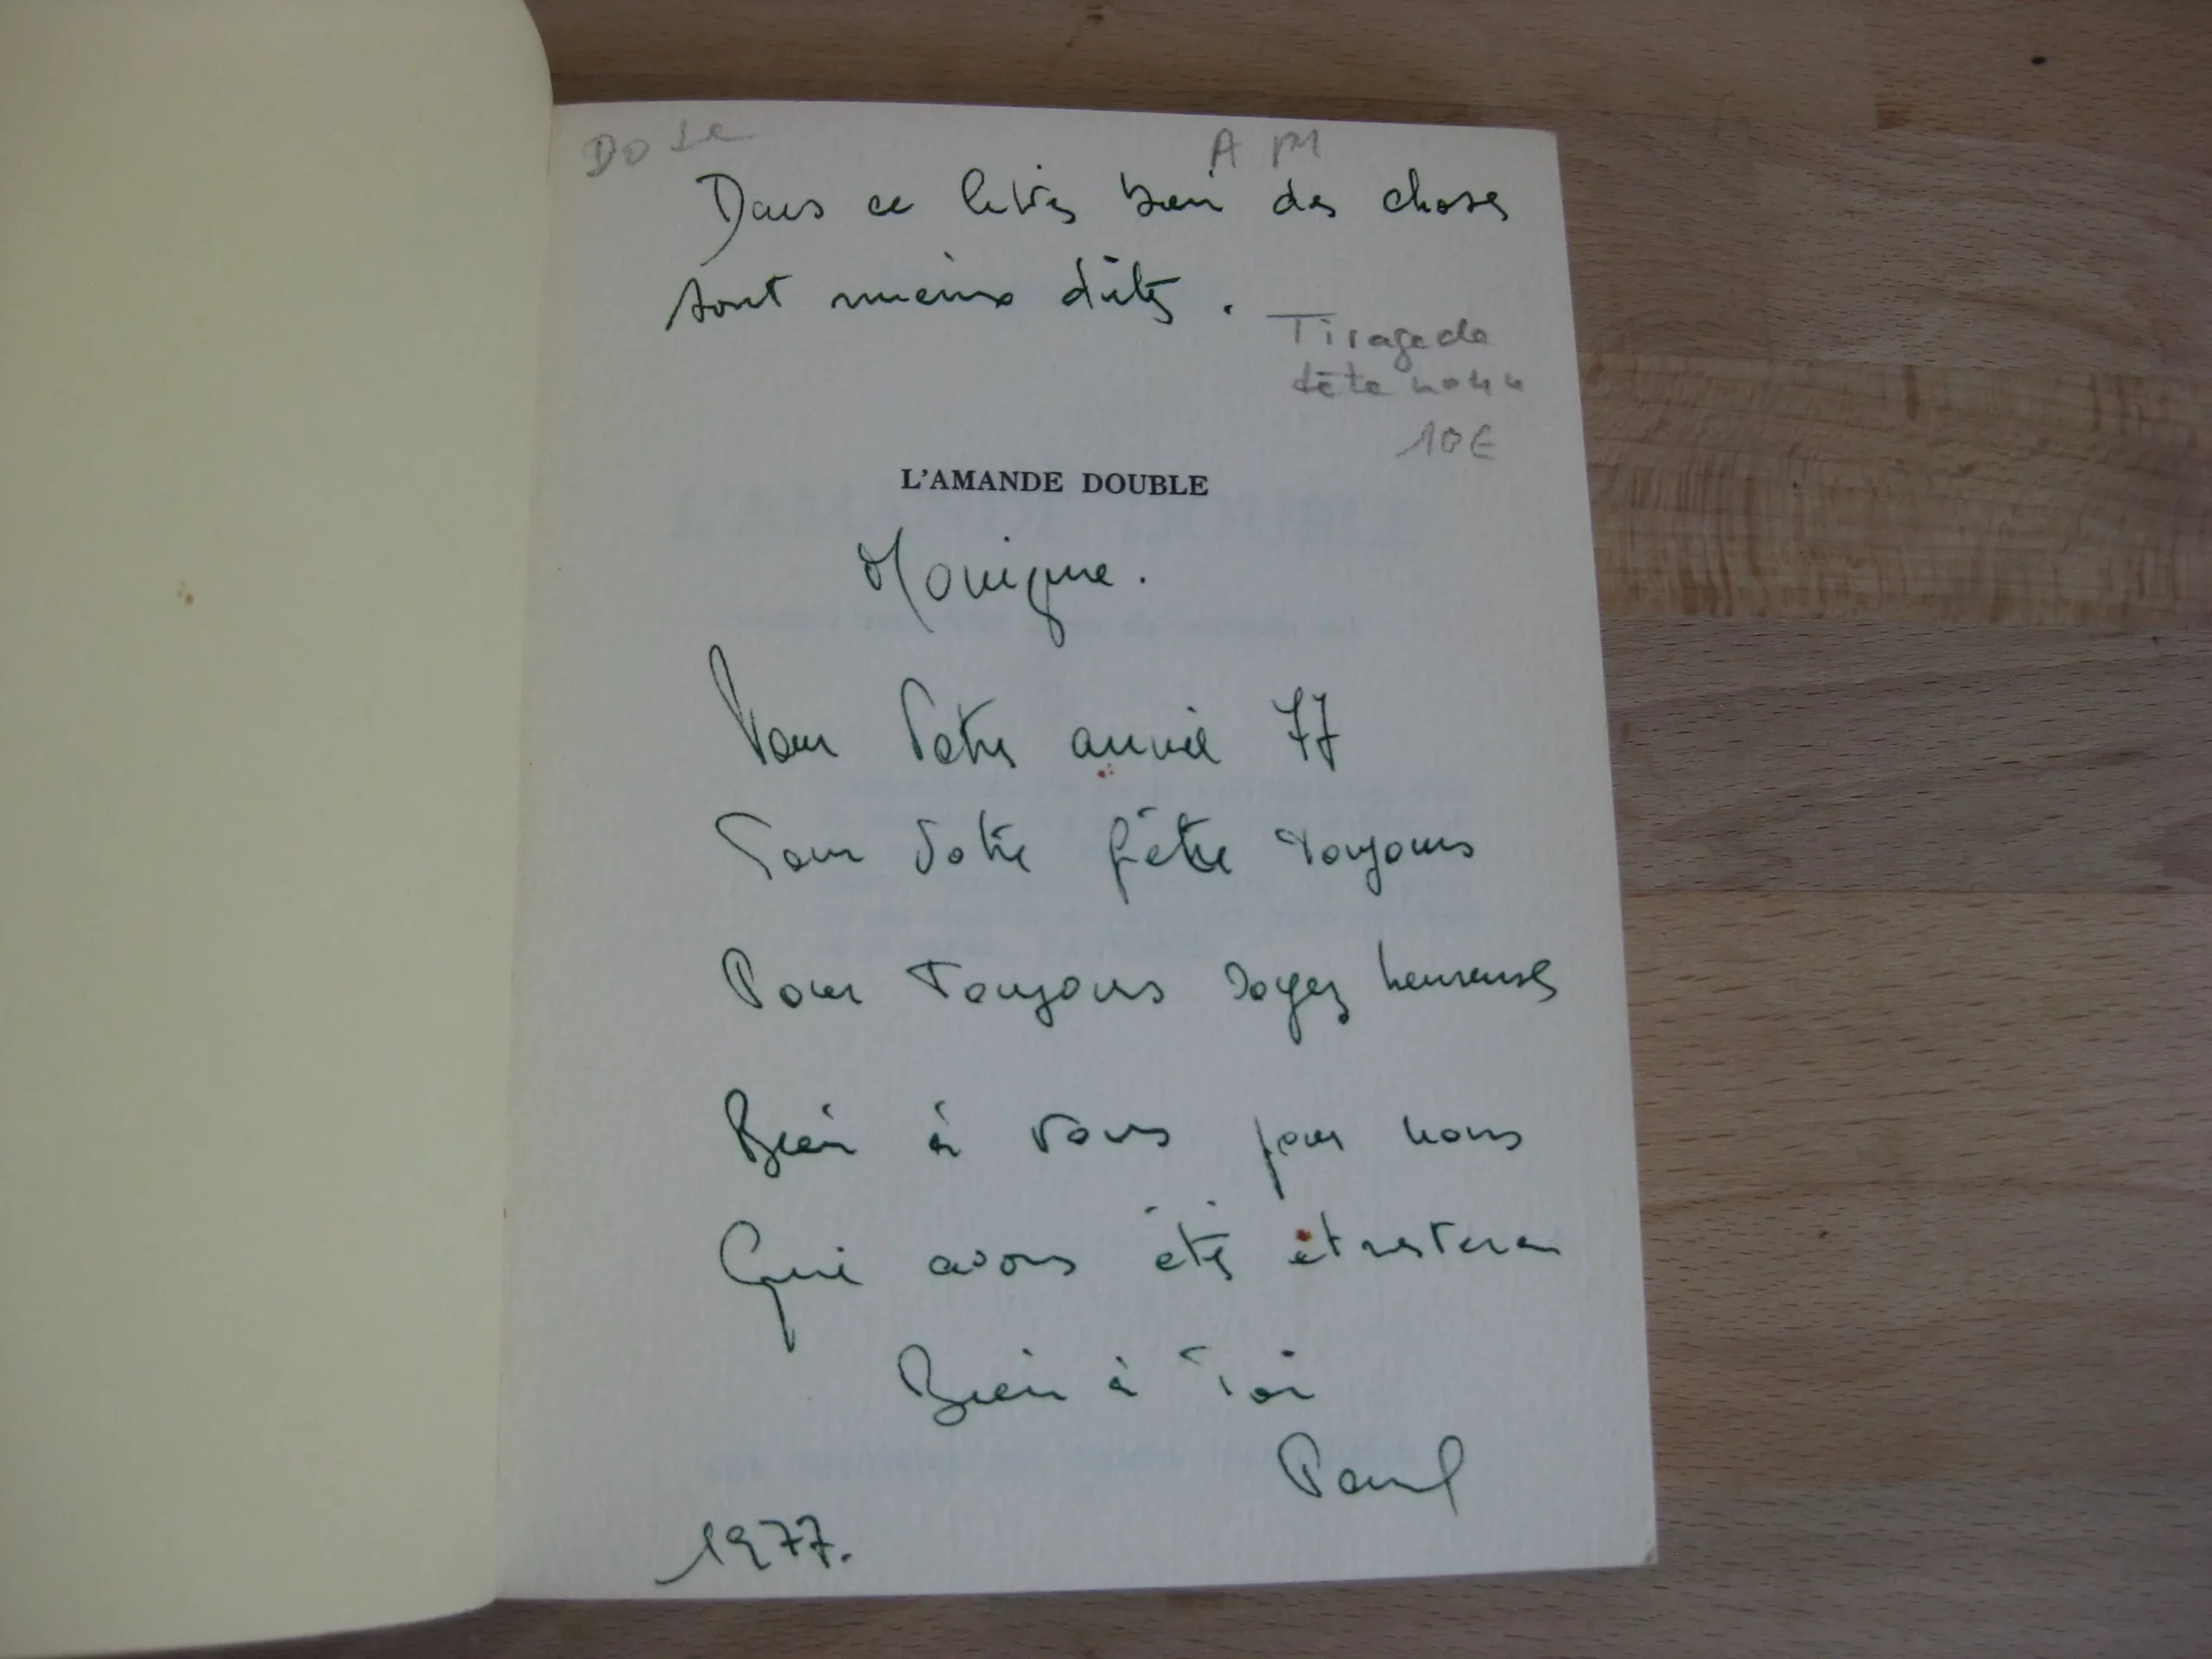 A PM
Dans ce livre bien des choses
sont mieux dites.
Tirage de
tête
10€
L'AMANDE DOUBLE
Monique.
Pour Votre année 77
Pour Votre fête toujours
Pour Toujours soyez heureuse
Bien à vous pour nous
Qui avons été et
Bien à Toi
Paul
1977.